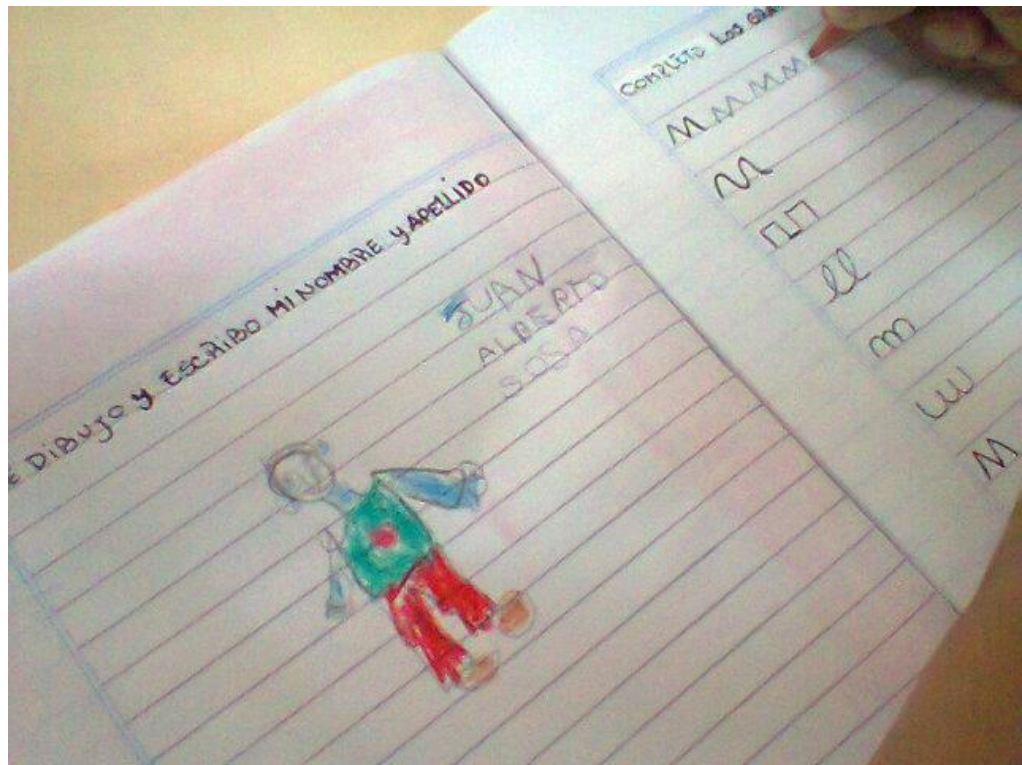 E DIBUJO y ESCRIBO MI NOMBRE y APELLIDO
JUAN
ALBERTO
SOSA
COMPLETO LOS